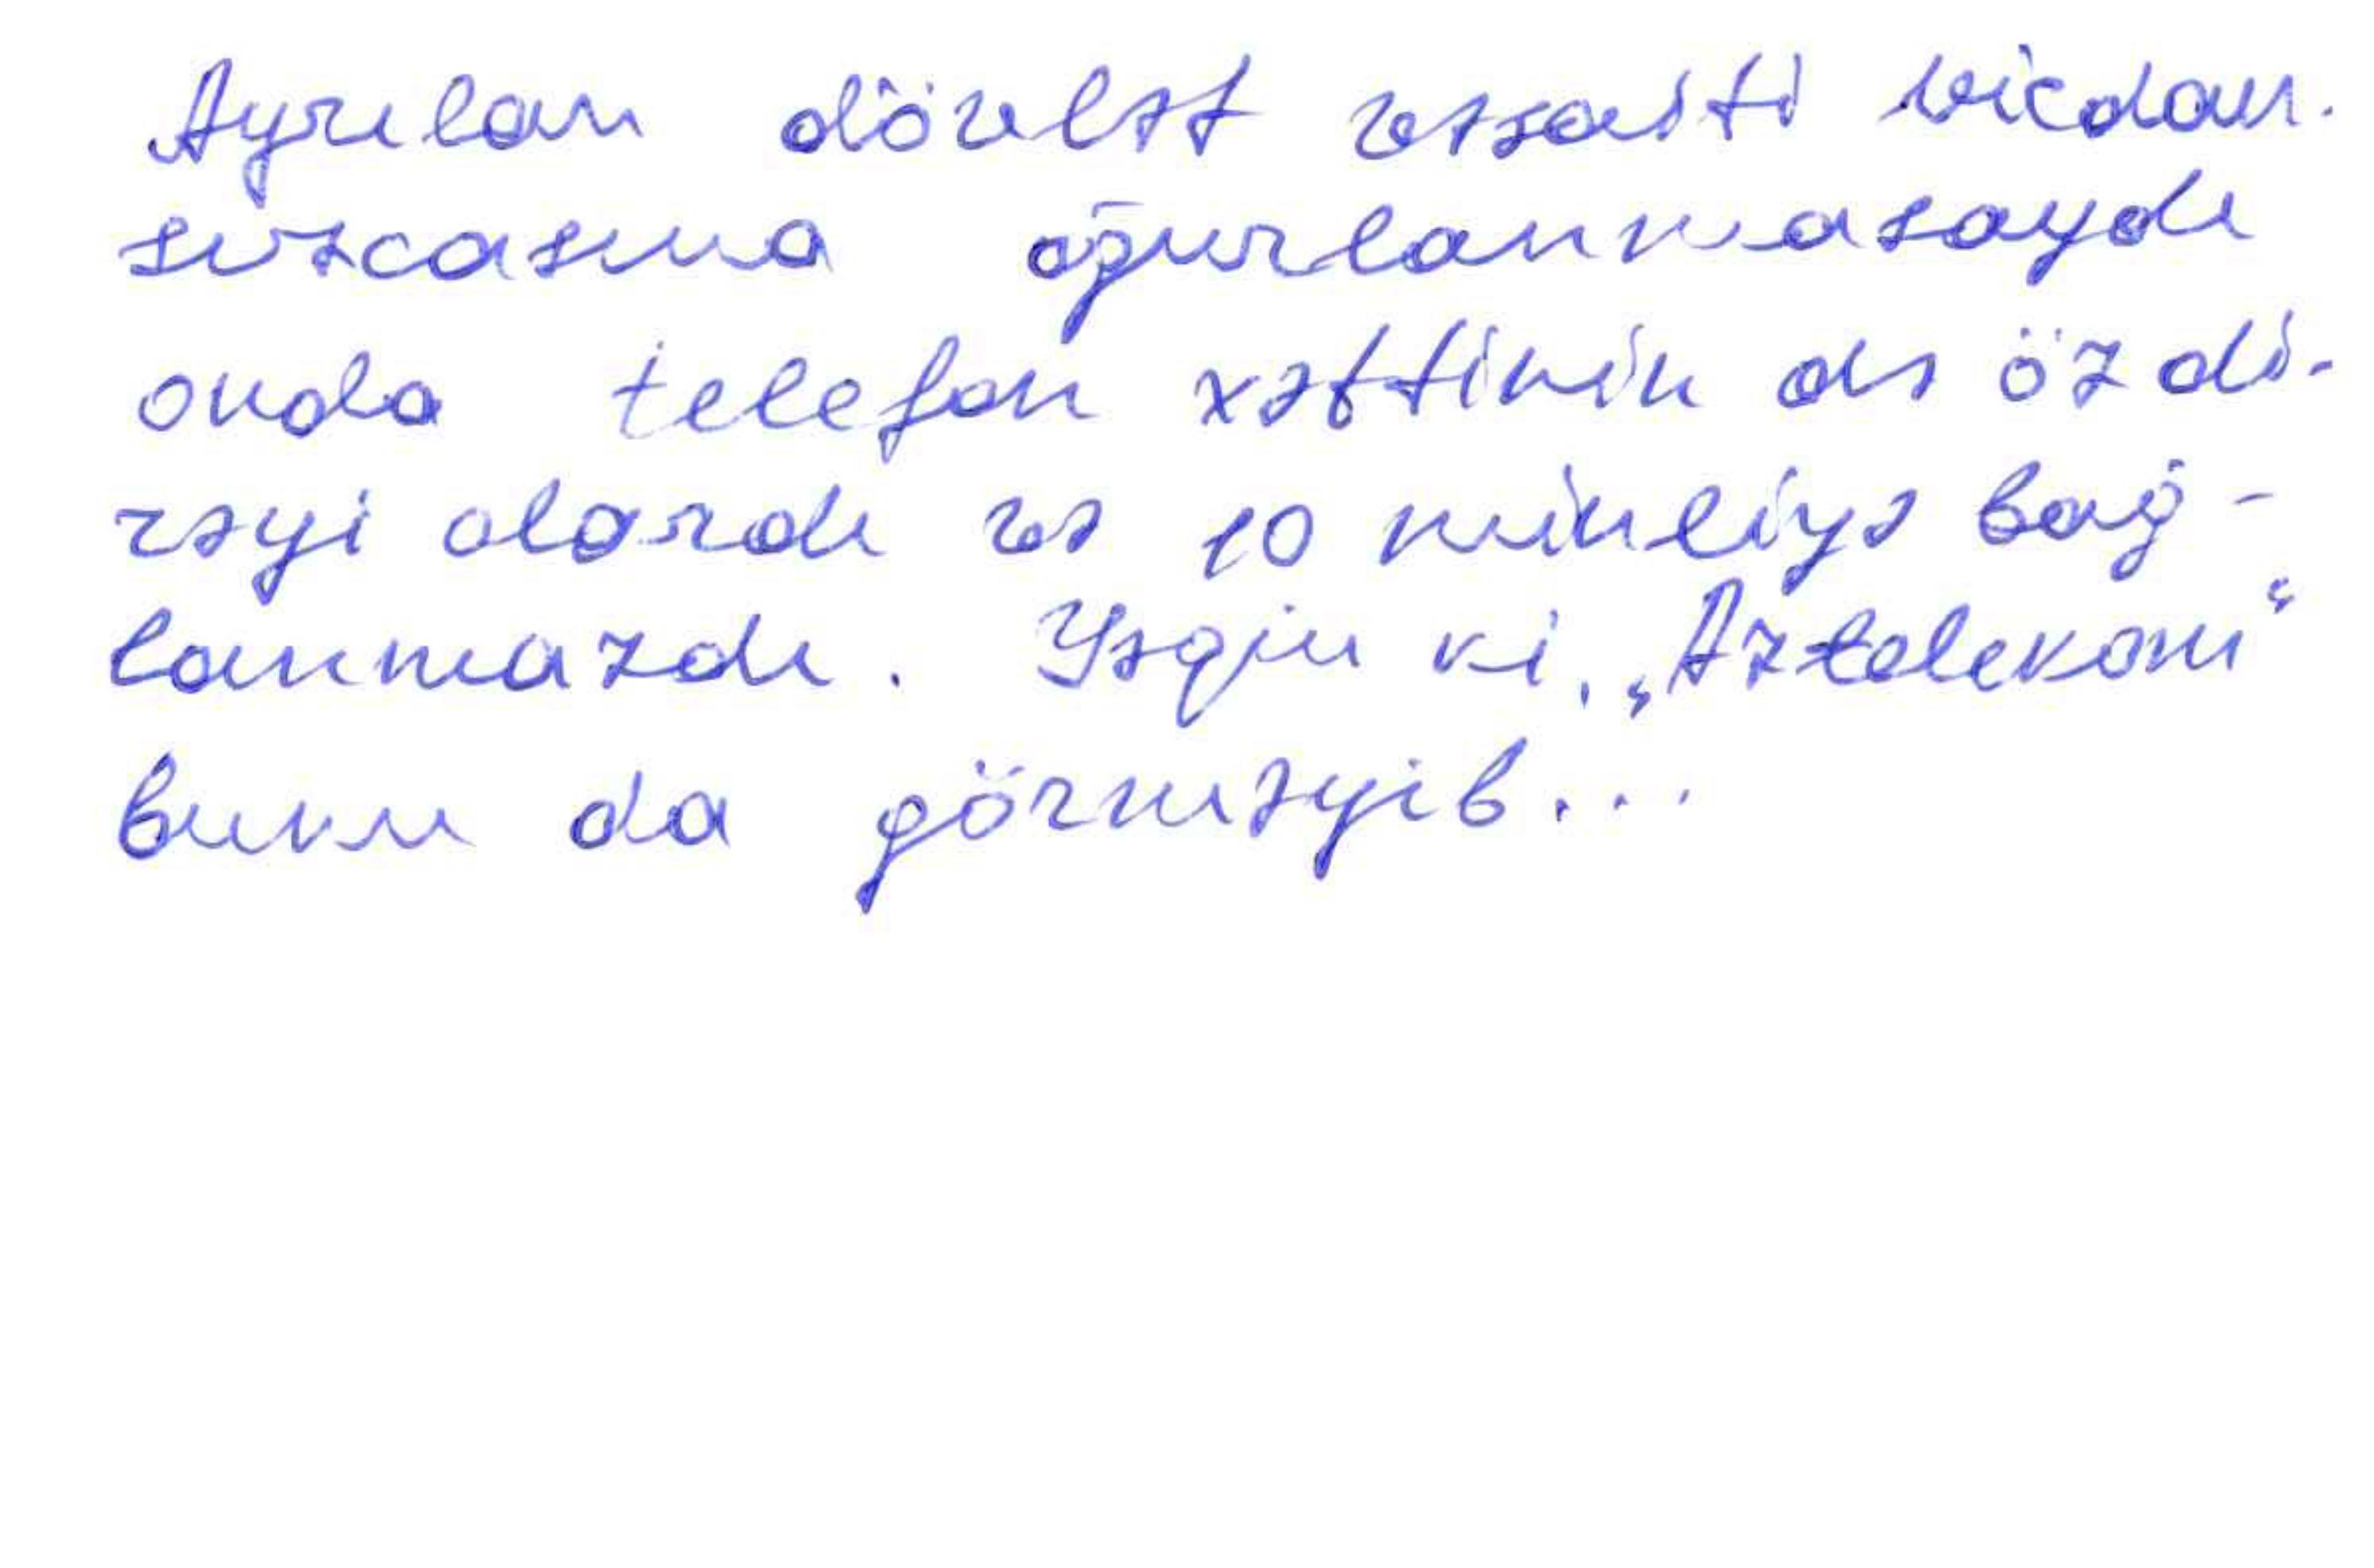 Ayrılan dövlət vəsaiti vicdan-
sızcasına oğurlanmasaydı
onda telefon xəttinin də öz di-
rəyi olardı və 10 minliyə bağ-
lanmazdı. Yəqin ki, „Aztelekom“
bunu da görməyib...